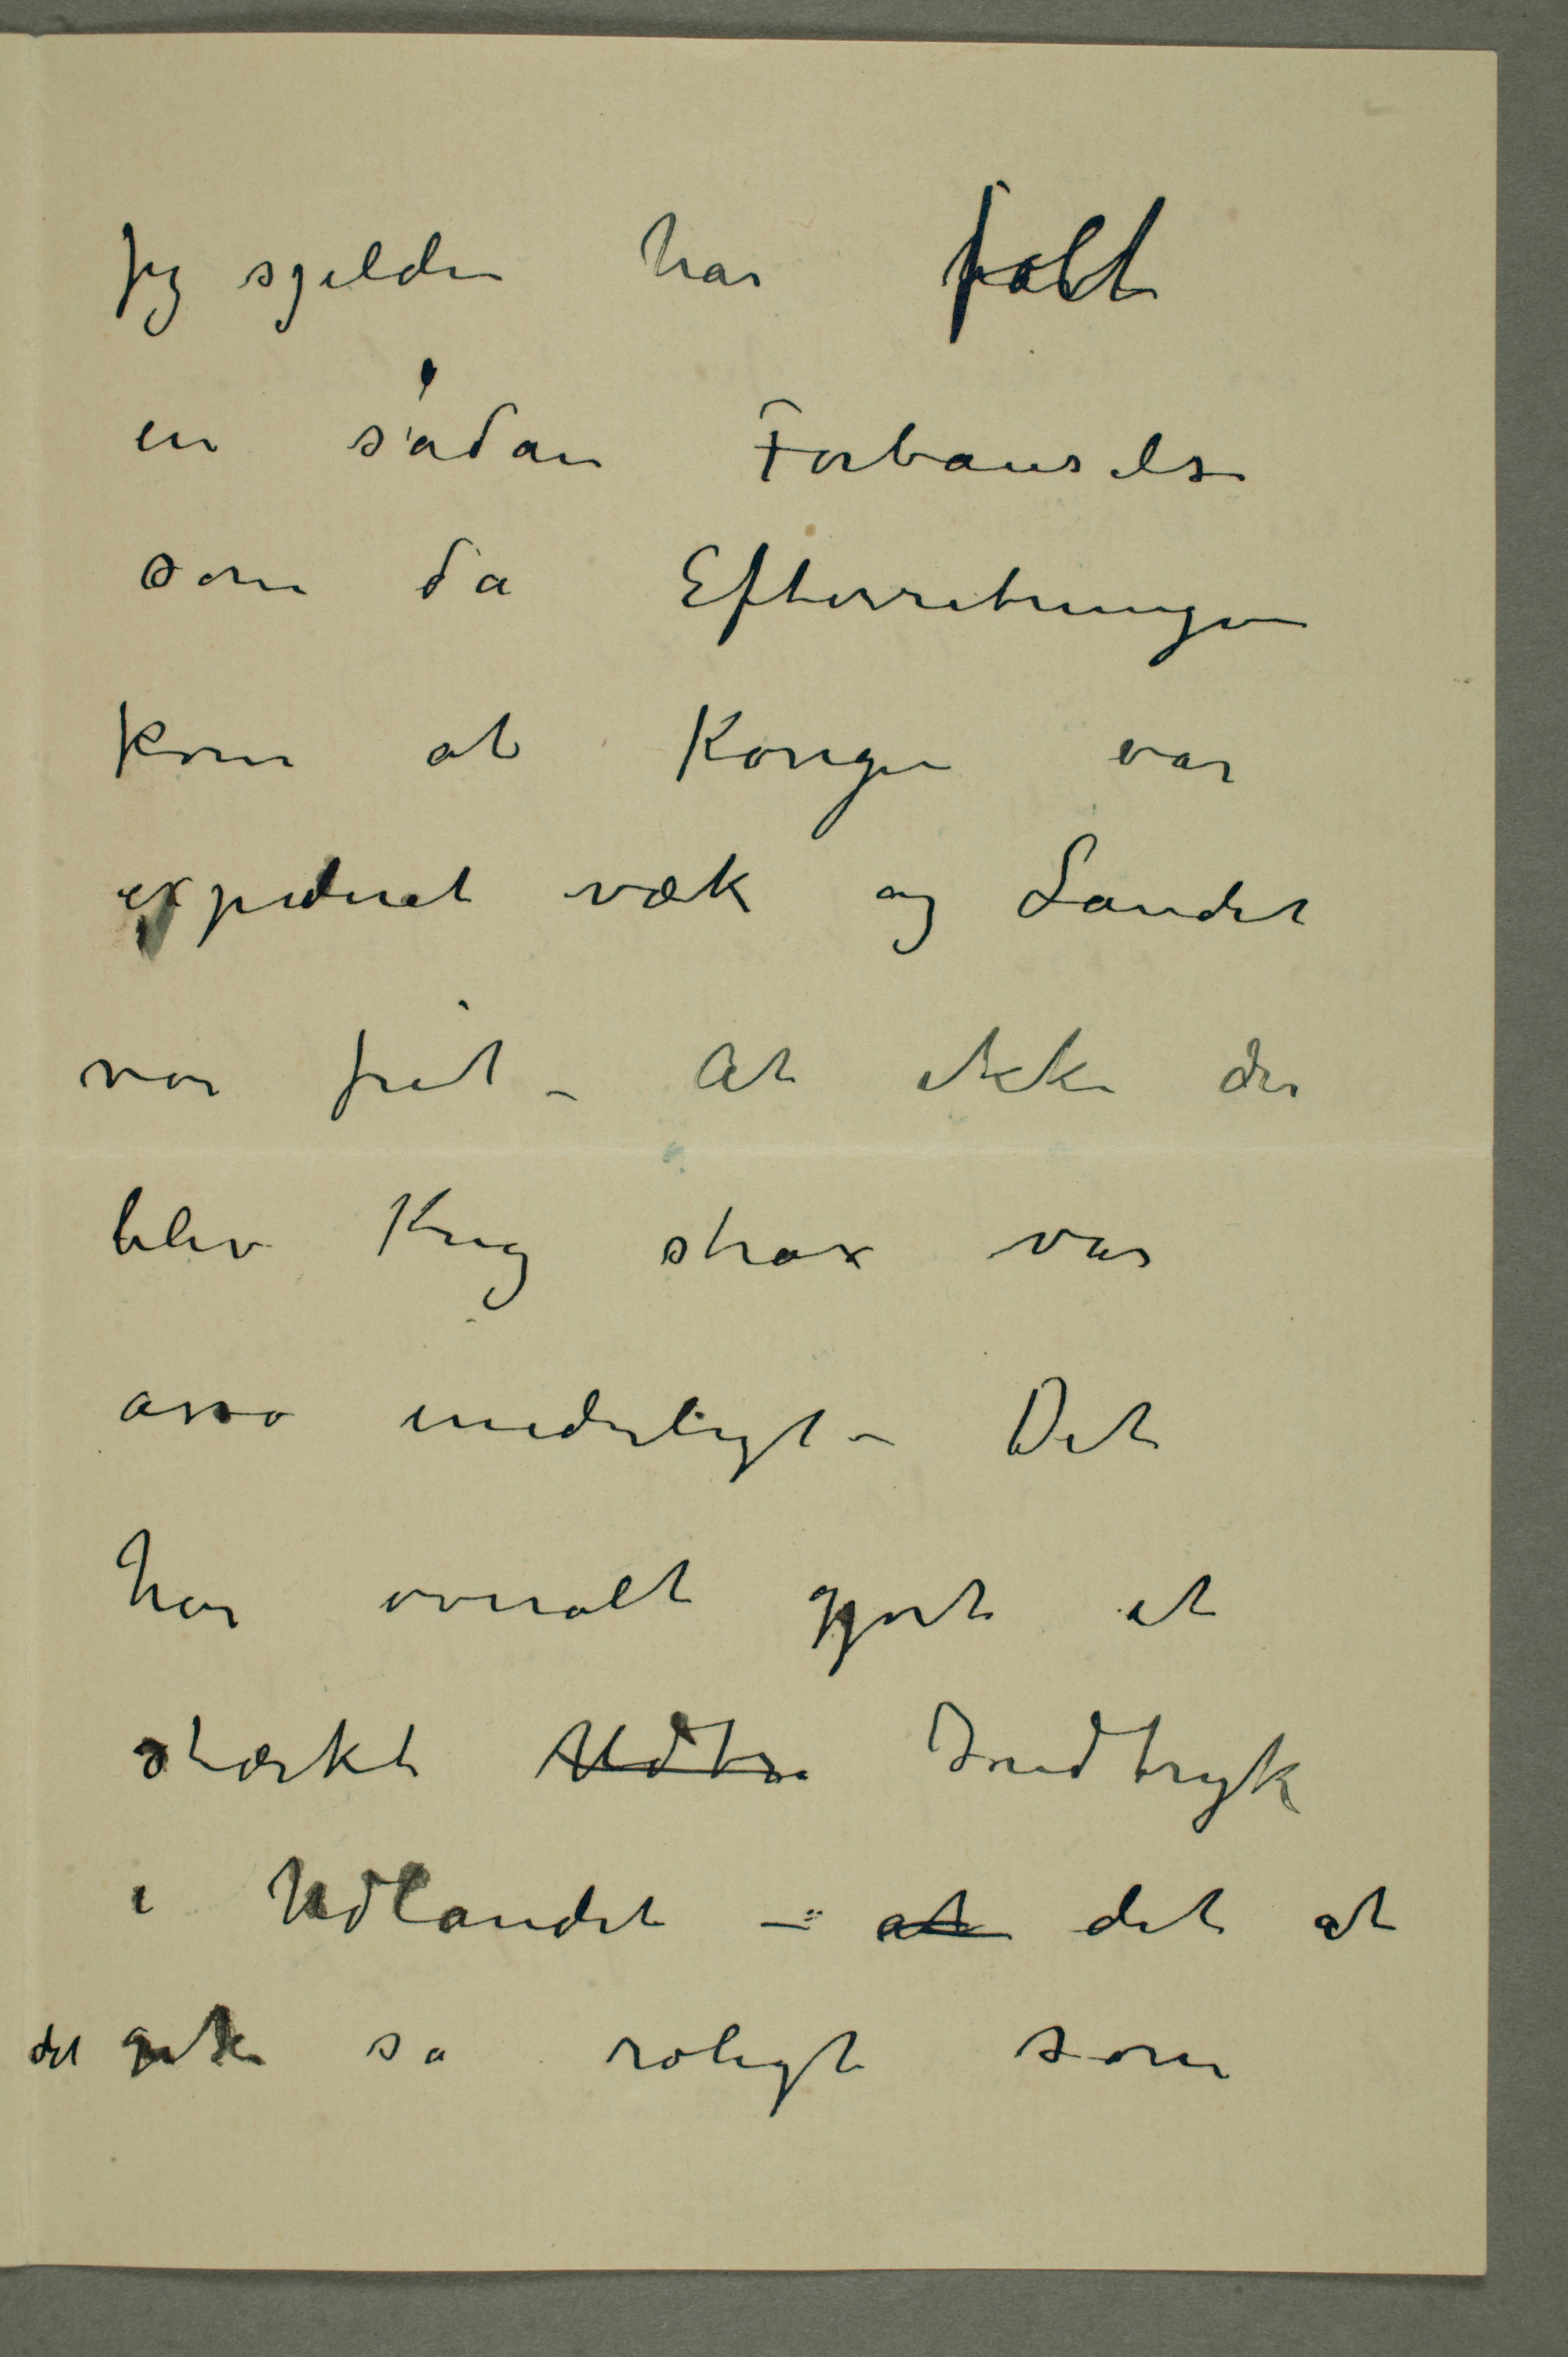 jeg sjelden har følt
en sådan Forbauselse
som da Efterretningen
kom at Kongen var
expederet væk og Landet
var frit – At ikke der
blev Krig strax var
osso underligt – Det
har overalt gjort et
stærkt Udtr Indtryk
i Udlandet – at det at
det gik så roligt som